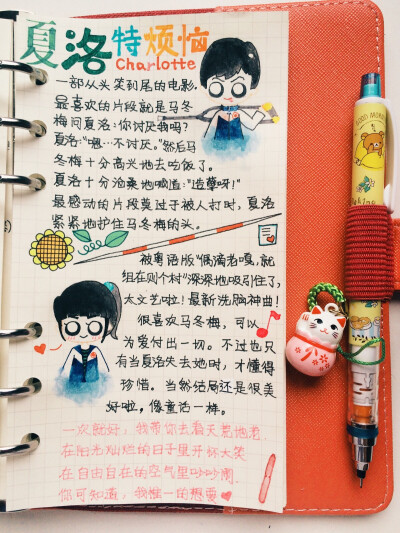 夏洛特烦恼
Charlotte
一部从头笑到尾的电影.
最喜欢的片段就是马冬
梅问夏洛:你讨厌我吗?
夏洛:"嗯…不讨厌."然后马
冬梅十分高兴地去吃饭了。
夏洛十分沧桑地喊道:"造孽呀!"
最感动的片段莫过于被人打时，夏洛
紧紧地护住马冬梅的头。
被粤语版"偶滴老嘎,就
组在则个村"深深地吸引住了,
太文艺啦！最新洗脑神曲！
很喜欢马冬梅，可以
为爱付出一切。不过也只
有当夏洛失去她时，才懂得
珍惜。当然结局还是很美
好啦，像童话一样。
一次就好，我带你去看天荒地老
在阳光灿烂的日子里开怀大笑
在自由自在的空气里吵吵闹
你可知道，我唯一的想要
GOOD MORNING